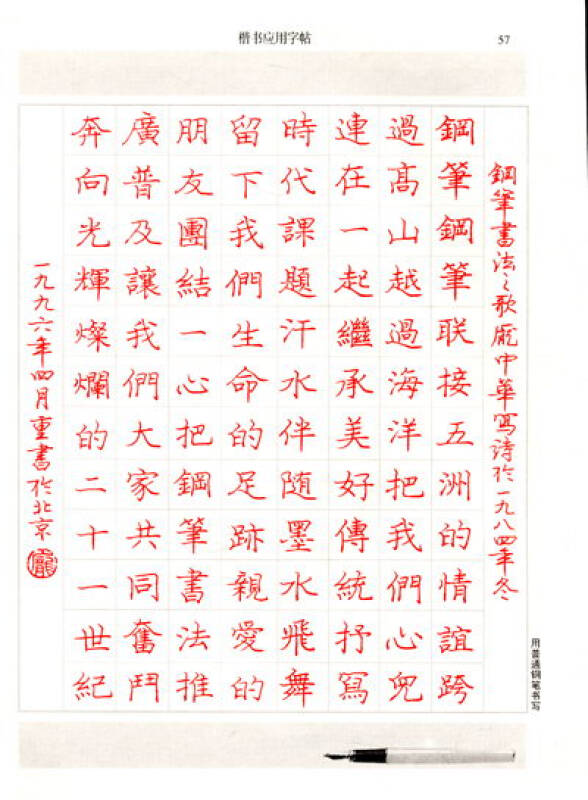 楷书应用字帖
57
鋼筆書法之歌龎中華寫诗於一九八四年冬
鋼筆鋼筆联接五洲的情誼跨
過高山越過海洋把我們心兒
連在一起繼承美好傳統抒寫
時代課題汗水伴随墨水飛舞
留下我們生命的足跡親愛的
朋友團結一心把鋼筆書法推
廣普及讓我們大家共同奮鬥
奔向光輝燦爛的二十一世紀
一九九六年四月重書於北京
用普通钢笔书写